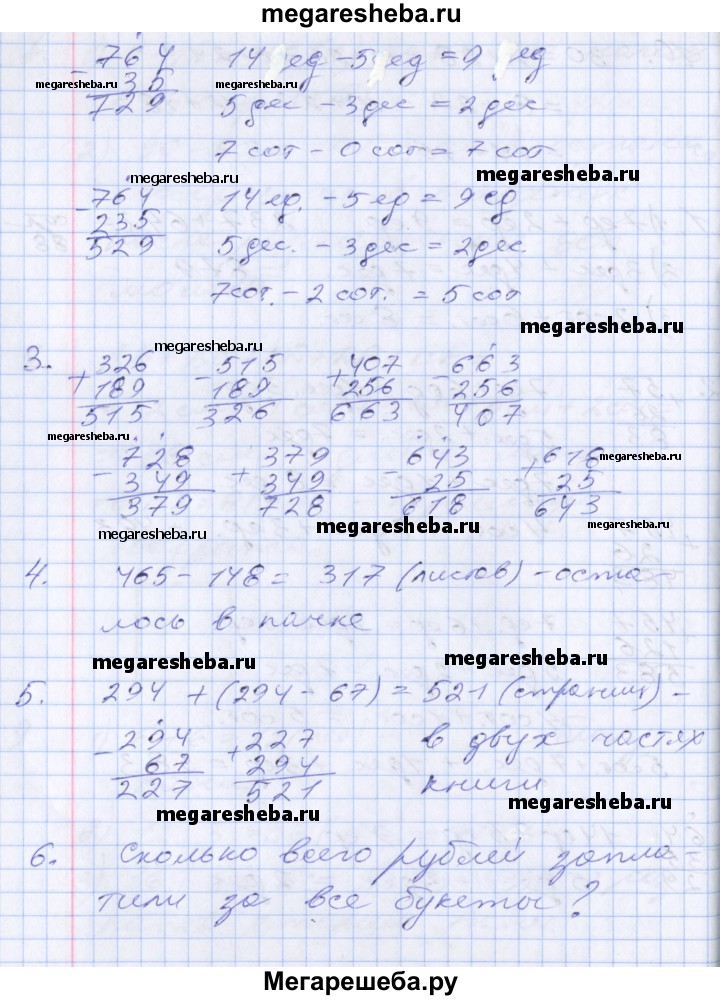 megaresheba.ru
- 764   14 ед - 5 ед = 9 ед
megaresheba.ru 35 megaresheba.ru
729   5 дес - 3 дес = 2 дес
7 сот - 0 сот = 7 сот
megaresheba.ru megaresheba.ru
- 764   14 ед. - 5 ед = 9 ед
235
529   5 дес. - 3 дес = 2 дес.
7 сот. - 2 сот. = 5 сот
megaresheba.ru
megaresheba.ru
3. + 326   - 515   + 407   - 663
189   189   256   256
515   326   663   407
megaresheba.ru
- 728   + 379   - 643   + 618 megaresheba.ru
349   349   25   25
379   728   618   643
megaresheba.ru megaresheba.ru
megaresheba.ru
4. 465 - 148 = 317 (листов) - оста-
лось в пачке
megaresheba.ru megaresheba.ru
5. 294 + (294 - 67) = 521 (страниц) -
- 294   + 227   в двух частях
67   294
227   521   книги
megaresheba.ru megaresheba.ru
6. Сколько всего рублей запла
тили за все букеты?
Мегарешеба.ру